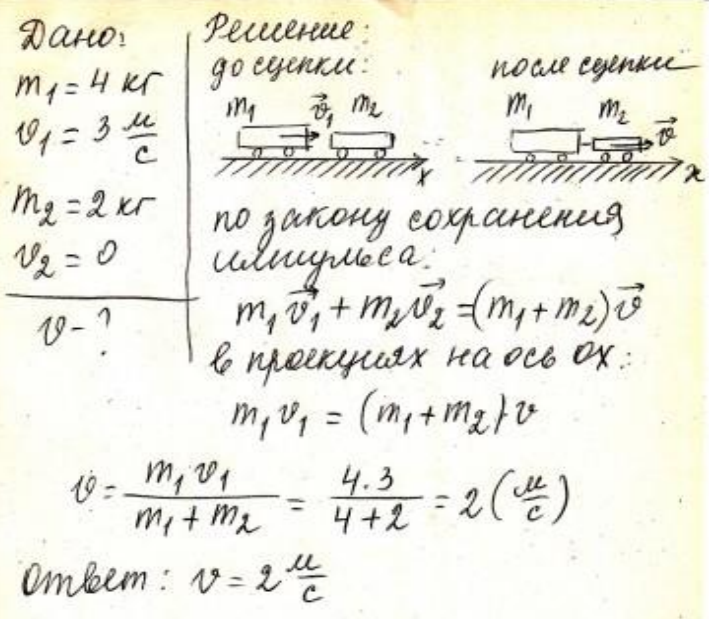 Дано:
m₁ = 4 кг
v₁ = 3 м/с
m₂ = 2 кг
v₂ = 0
v - ?
Решение:
до сцепки:
m₁ v⃗₁ m₂
x
после сцепки
m₁ m₂ v⃗
x
по закону сохранения
импульса:
m₁v⃗₁ + m₂v⃗₂ = (m₁ + m₂)v⃗
в проекциях на ось ох:
m₁v₁ = (m₁ + m₂)v
v = m₁v₁ / (m₁ + m₂) = 4·3 / (4+2) = 2 (м/с)
Ответ: v = 2 м/с